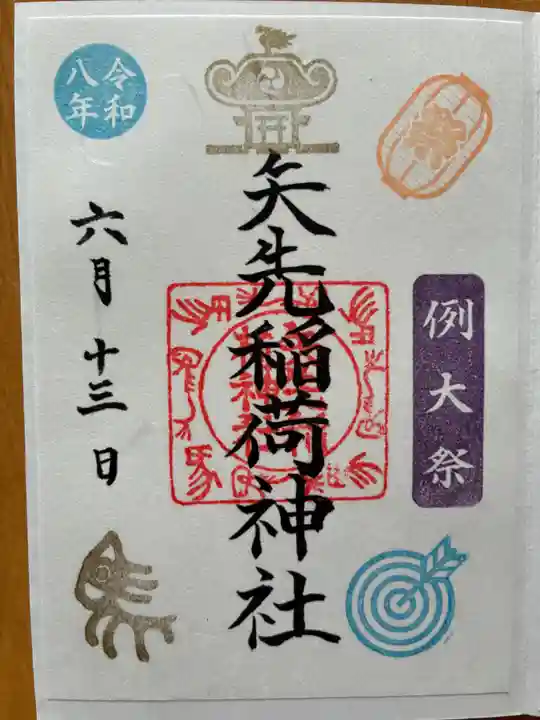 矢先稲荷神社
例大祭
令和
八年
六月十三日